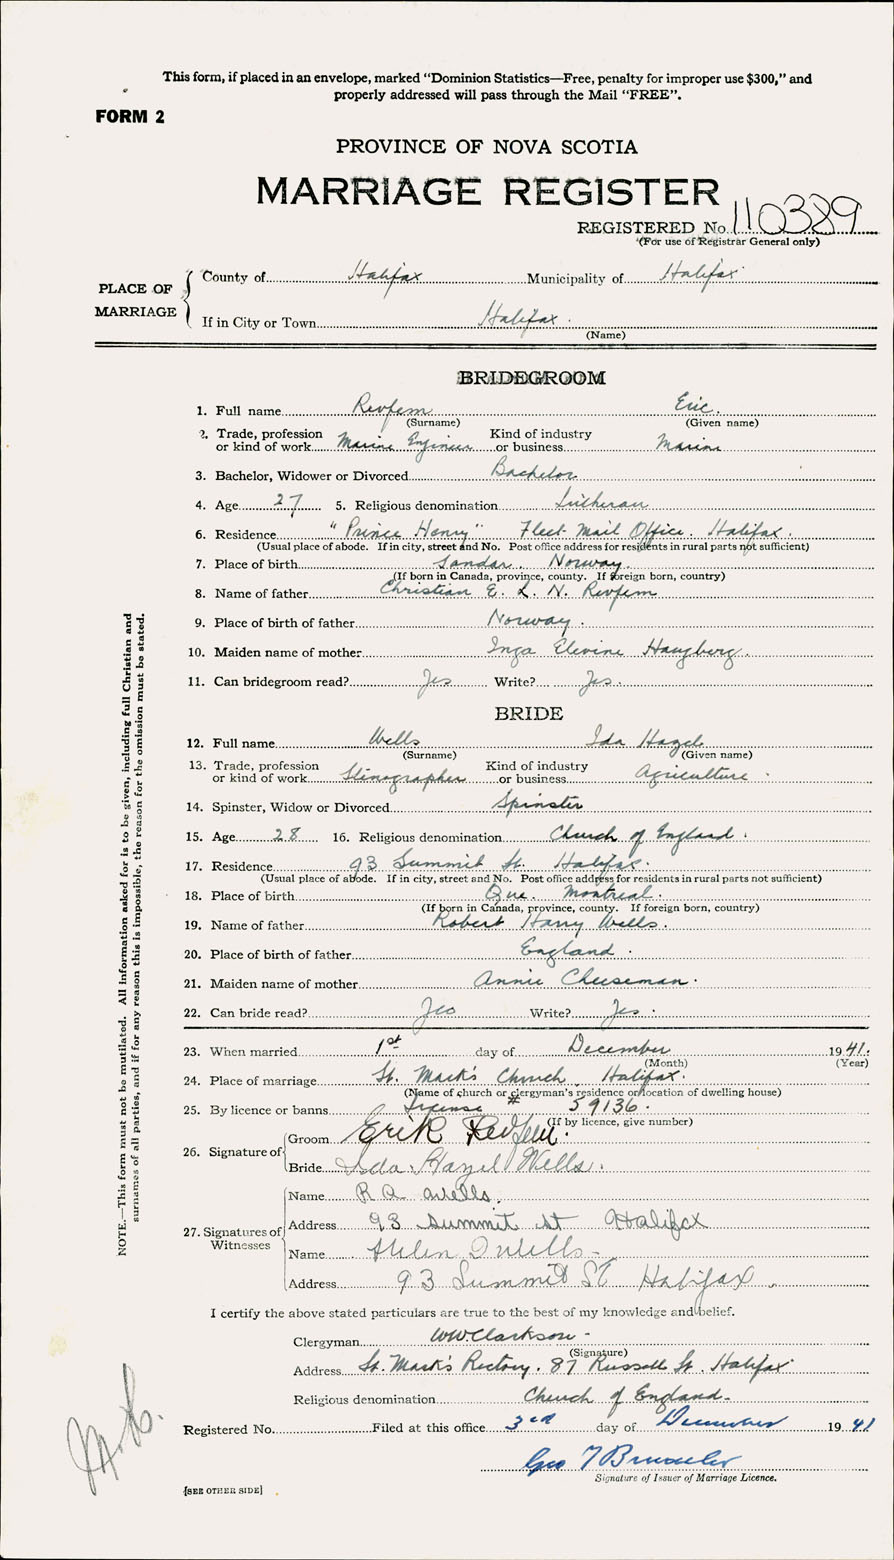 This form, if placed in an envelope, marked "Dominion Statistics—Free, penalty for improper use $300," and
properly addressed will pass through the Mail "FREE".
FORM 2
PROVINCE OF NOVA SCOTIA
MARRIAGE REGISTER
REGISTERED No. 110389
(For use of Registrar General only)
PLACE OF MARRIAGE
County of Halifax Municipality of Halifax
If in City or Town Halifax.
(Name)
BRIDEGROOM
1. Full name Revfem Eric.
(Surname) (Given name)
2. Trade, profession or kind of work Marine Engineer Kind of industry or business Marine
3. Bachelor, Widower or Divorced Bachelor
4. Age 27 5. Religious denomination Lutheran
6. Residence "Prince Henry" Fleet Mail Office. Halifax.
(Usual place of abode. If in city, street and No. Post office address for residents in rural parts not sufficient)
7. Place of birth Sandar. Norway.
(If born in Canada, province, county. If foreign born, country)
8. Name of father Christian E. L. N. Revfem
9. Place of birth of father Norway.
10. Maiden name of mother Inga Elevine Haugberg.
11. Can bridegroom read? Yes Write? Yes.
BRIDE
12. Full name Wells Ida Hazel
(Surname) (Given name)
13. Trade, profession or kind of work Stenographer Kind of industry or business Agriculture.
14. Spinster, Widow or Divorced Spinster
15. Age 28 16. Religious denomination Church of England.
17. Residence 93 Summit St. Halifax.
(Usual place of abode. If in city, street and No. Post office address for residents in rural parts not sufficient)
18. Place of birth Que. Montreal.
(If born in Canada, province, county. If foreign born, country)
19. Name of father Robert Harry Wells.
20. Place of birth of father England.
21. Maiden name of mother Annie Cheeseman.
22. Can bride read? Yes Write? Yes.
23. When married 1st day of December 1941.
(Month) (Year)
24. Place of marriage St. Mark's Church, Halifax.
(Name of church or clergyman's residence or location of dwelling house)
25. By licence or banns License # 59136.
(If by licence, give number)
26. Signature of
Groom Erik Revfem.
Bride Ida Hazel Wells.
27. Signatures of Witnesses
Name R A Wells.
Address 93 Summit St Halifax
Name Helen Wells-
Address 93 Summit St Halifax.
I certify the above stated particulars are true to the best of my knowledge and belief.
Clergyman WW. Clarkson-
(Signature)
Address St. Mark's Rectory. 87 Russell St. Halifax
Religious denomination Church of England-
Registered No. Filed at this office 3rd day of December 1941
Geo
Signature of Issuer of Marriage Licence.
[SEE OTHER SIDE]
NOTE.—This form must not be mutilated. All information asked for is to be given, including full Christian and
surnames of all parties, and if for any reason this is impossible, the reason for the omission must be stated.